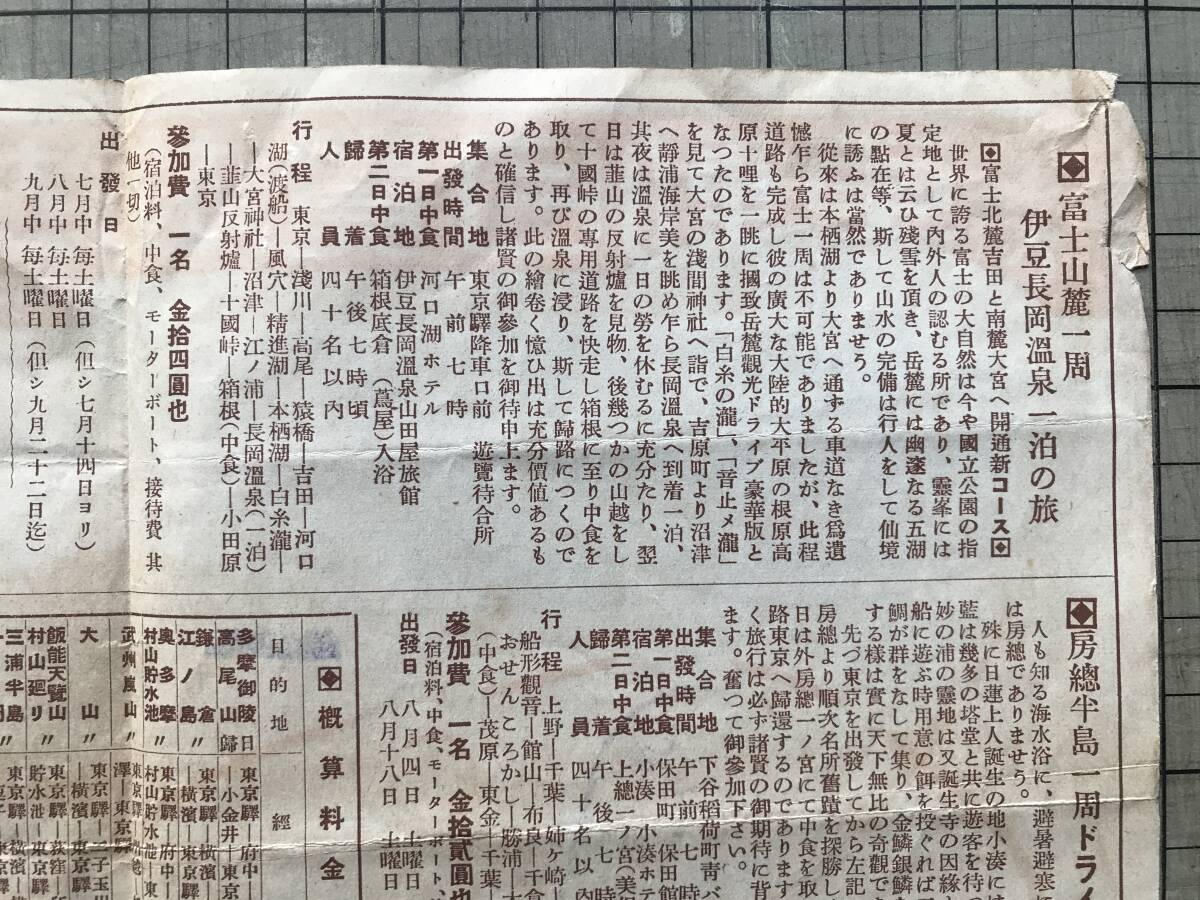 ◆富士山麓一周
伊豆長岡溫泉一泊の旅
◆富士北麓吉田と南麓大宮へ開通新コース◆
世界に誇る富士の大自然は今や國立公園の指
定地として内外人の認むる所であり、靈峯には
夏とは云ひ殘雪を頂き、岳麓には幽邃なる五湖
の點在等、斯して山水の完備は行人をして仙境
に誘ふは當然でありませう。
從來は本栖湖より大宮へ通ずる車道なき爲遺
憾乍ら富士一周は不可能でありましたが、此程
道路も完成し彼の廣大な大陸的大平原の根原高
原十哩を一眺に摑致岳麓觀光ドライブ豪華版と
なつたのであります。「白糸の瀧」、「音止メ瀧」
を見て大宮の淺間神社へ詣で、吉原町より沼津
へ靜浦海岸美を眺め乍ら長岡溫泉へ到着一泊、
其夜は溫泉に一日の勞を休むるに充分たり、翌
日は韮山の反射爐を見物、後幾つかの山越をし
て十國峠の專用道路を快走し箱根に至り中食を
取り、再び溫泉に浸り、斯して歸路につくので
あります。此の繪卷く憶ひ出は充分價値あるも
のと確信し諸賢の御參加を御待申上ます。
集合地 東京驛降車口前 遊覽待合所
出發時間 午前七時
第一日中食 河口湖ホテル
宿泊地 伊豆長岡溫泉山田屋旅館
第二日中食 箱根底倉(蔦屋)入浴
歸着 午後七時頃
人員 四十名以內
行程 東京―淺川―高尾―猿橋―吉田―河口
湖(渡船)―風穴―精進湖―本栖湖―白糸瀧―
―大宮神社―沼津―江ノ浦―長岡溫泉(一泊)
―韮山反射爐―十國峠―箱根(中食)―小田原
―東京
參加費 一名 金拾四圓也
(宿泊料、中食、モーターボート、接待費 其
他一切)
出發日
七月中 每土曜日(但シ七月十四日ヨリ)
八月中 每土曜日
九月中 每土曜日(但シ九月二十二日迄)
◆房總半島一周ドライ
人も知る海水浴に、避暑避寒に
は房總でありませう。
殊に日蓮上人誕生の地小湊には
藍は幾多の塔堂と共に遊客を待つ
妙の浦の靈地は又誕生寺の因緣と
船に遊ぶ時用意の餌を投ぐれば
鯛が群をなして集り、金鱗銀鱗
する樣は實に天下無比の奇觀で
先づ東京を出發してから左記
房總より順次名所舊蹟を探勝し
日は外房總一ノ宮にて中食を取
路東京へ歸還するのであります
く旅行は必ず諸賢の御期待に背
ます。奮つて御參加下さい。
集合地 下谷稻荷町靑バ
出發時間 午前七時
第一日中食 保田町 保田館
宿泊地 小湊 小湊ホテ
第二日中食 上總一ノ宮(美
歸着 午後七時
人員 四十名以內
行程 上野―千葉―姉ヶ崎―
船形觀音―館山―布良―千倉
おせんころがし―勝浦―大
(中食)―茂原―東金―千葉
參加費 一名 金拾貳圓也
(宿泊料、中食、モーターボート、
出發日 八月四日 土曜日
八月十八日 土曜日
◆槪算料金
目的地
經
多摩御陵
高尾山
日歸
東京驛―府中
―小金井―東京
鎌倉
江ノ島
〃
東京驛―橫濱
―橫濱―東京驛
奧多摩
村山貯水池
〃
東京驛―府中
村山貯水池―東
武州嵐山
〃
澤―東京驛
大山
〃
東京驛―二子玉
―橫濱―東京驛
飯能天覽山
村山廻リ
〃
東京驛―荻窪―
貯水池―東京驛
三浦半島
〃
東京驛―橫濱―